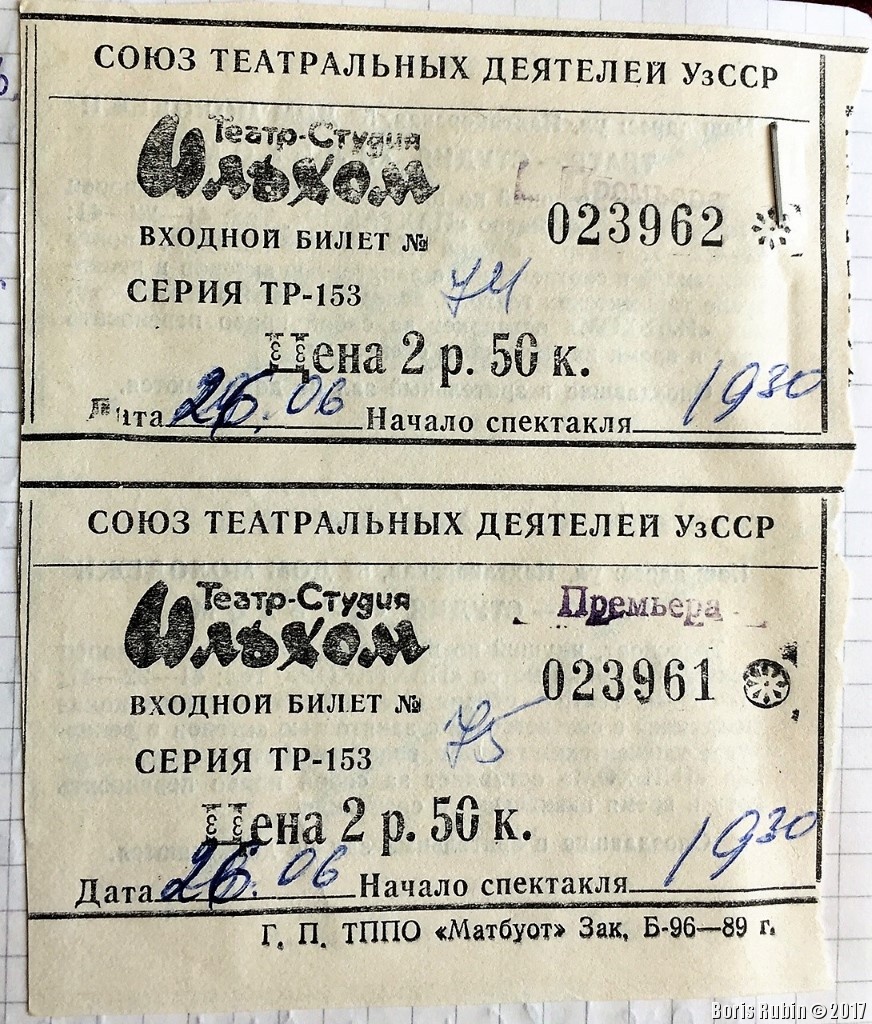 СОЮЗ ТЕАТРАЛЬНЫХ ДЕЯТЕЛЕЙ УзССР
Театр-Студия
Ильхом
ВХОДНОЙ БИЛЕТ № 023962
СЕРИЯ ТР-153 74
Цена 2 р. 50 к.
Дата 26.06 Начало спектакля 19 30
СОЮЗ ТЕАТРАЛЬНЫХ ДЕЯТЕЛЕЙ УзССР
Театр-Студия Премьера
Ильхом
ВХОДНОЙ БИЛЕТ № 023961
СЕРИЯ ТР-153 75
Цена 2 р. 50 к.
Дата 26.06 Начало спектакля 19 30
Г. П. ТППО «Матбуот» Зак. Б-96—89 г.
Boris Rubin © 2017